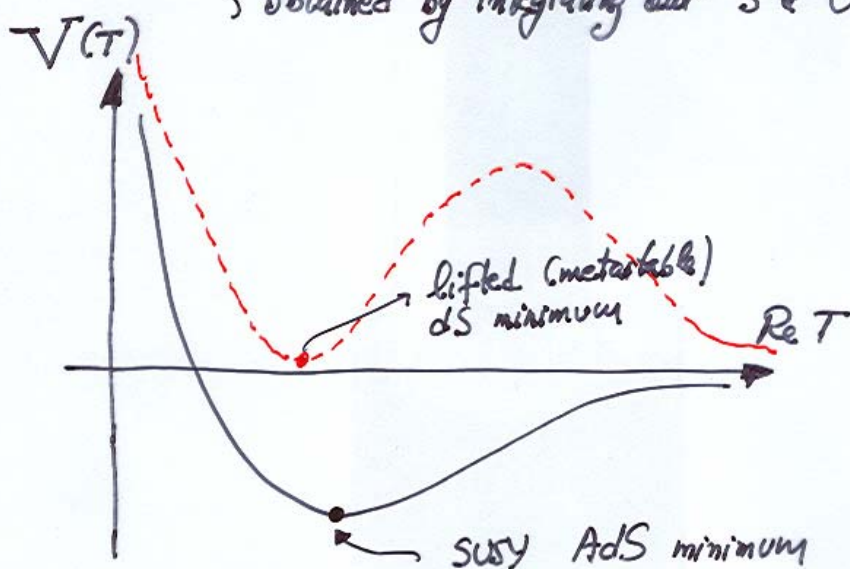 obtained by integrating out S & U
V(T)
lifted (metastable)
dS minimum
Re T
susy AdS minimum